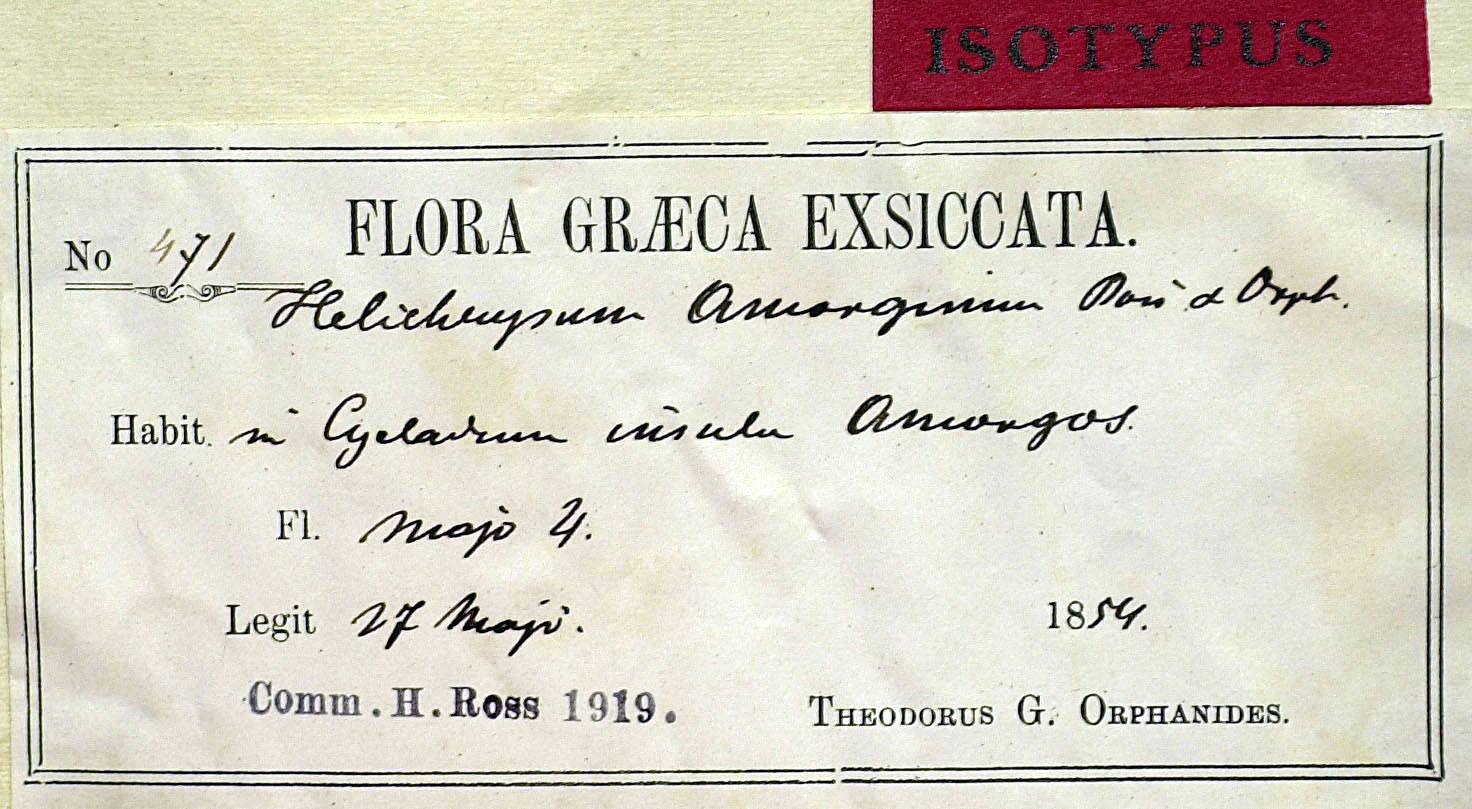 ISOTYPUS
FLORA GRÆCA EXSICCATA.
No 471
Helichrysum Amorginum Boiss & Orph.
Habit. in Cycladum insula Amorgos.
Fl. majo ♃.
Legit 27 Maji. 1854.
Comm. H. Ross 1919.
THEODORUS G. ORPHANIDES.